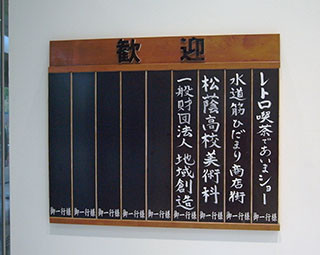 歓迎
レトロ喫茶であいまショー
水道筋ひだまり商店街
松蔭高校美術科
一般財団法人 地域創造
御一行様
御一行様
御一行様
御一行様
御一行様
御一行様
御一行様
御一行様
御一行様